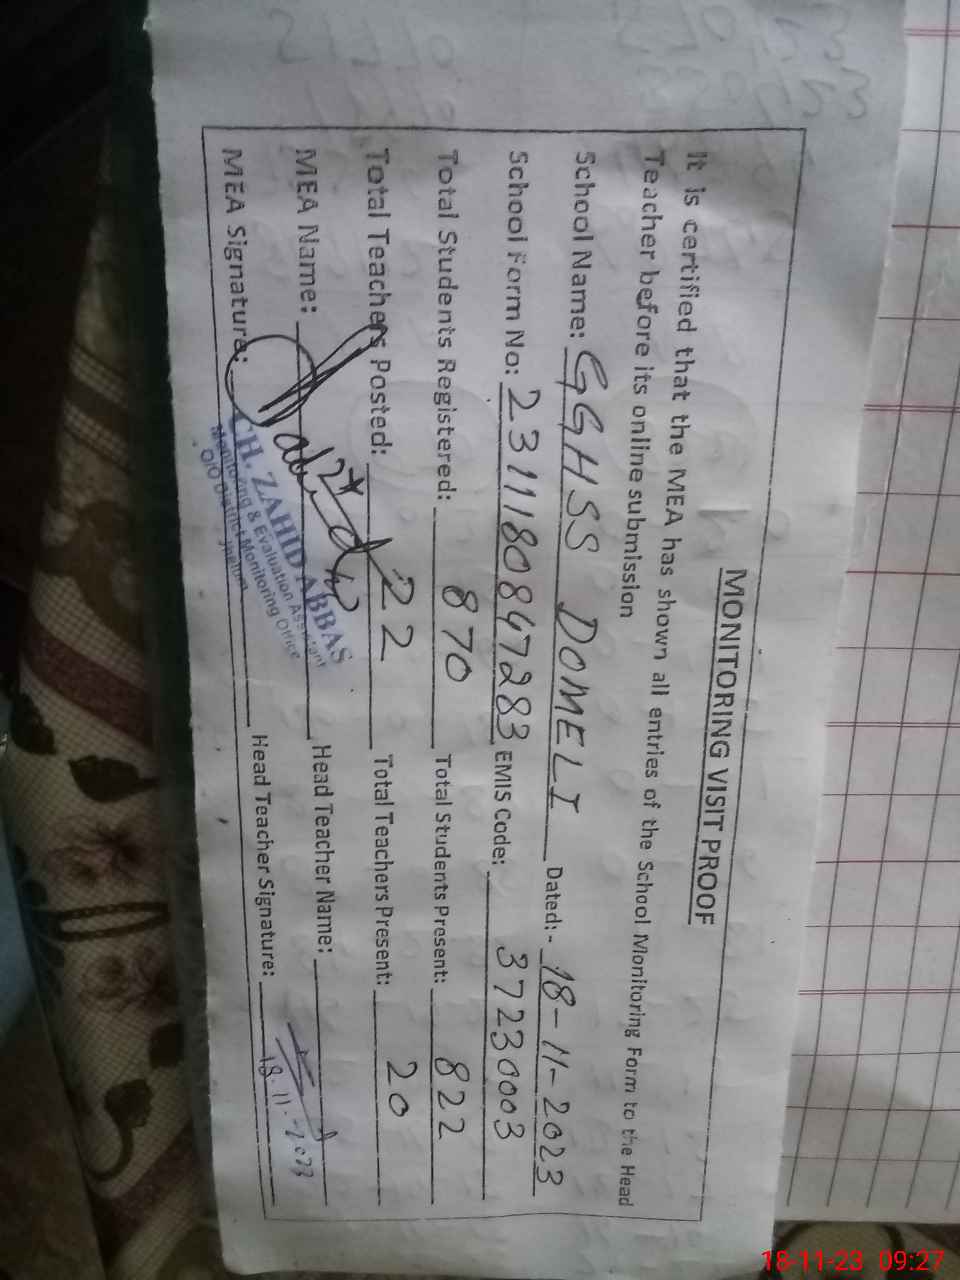 MONITORING VISIT PROOF
It is certified that the MEA has shown all entries of the School Monitoring Form to the Head
Teacher before its online submission
School Name: GGHSS DOMELI Dated:- 18-11-2023
School Form No: 23111808497283 EMIS Code: 37230003
Total Students Registered: 870 Total Students Present: 822
Total Teachers Posted: 22 Total Teachers Present: 20
MEA Name: Head Teacher Name:
MEA Signature: Head Teacher Signature: 18.11.-2023
CH. ZAHID ABBAS
Monitoring & Evaluation Assistant
O/O District Monitoring Office
Jhelum
18-11-23 09:27